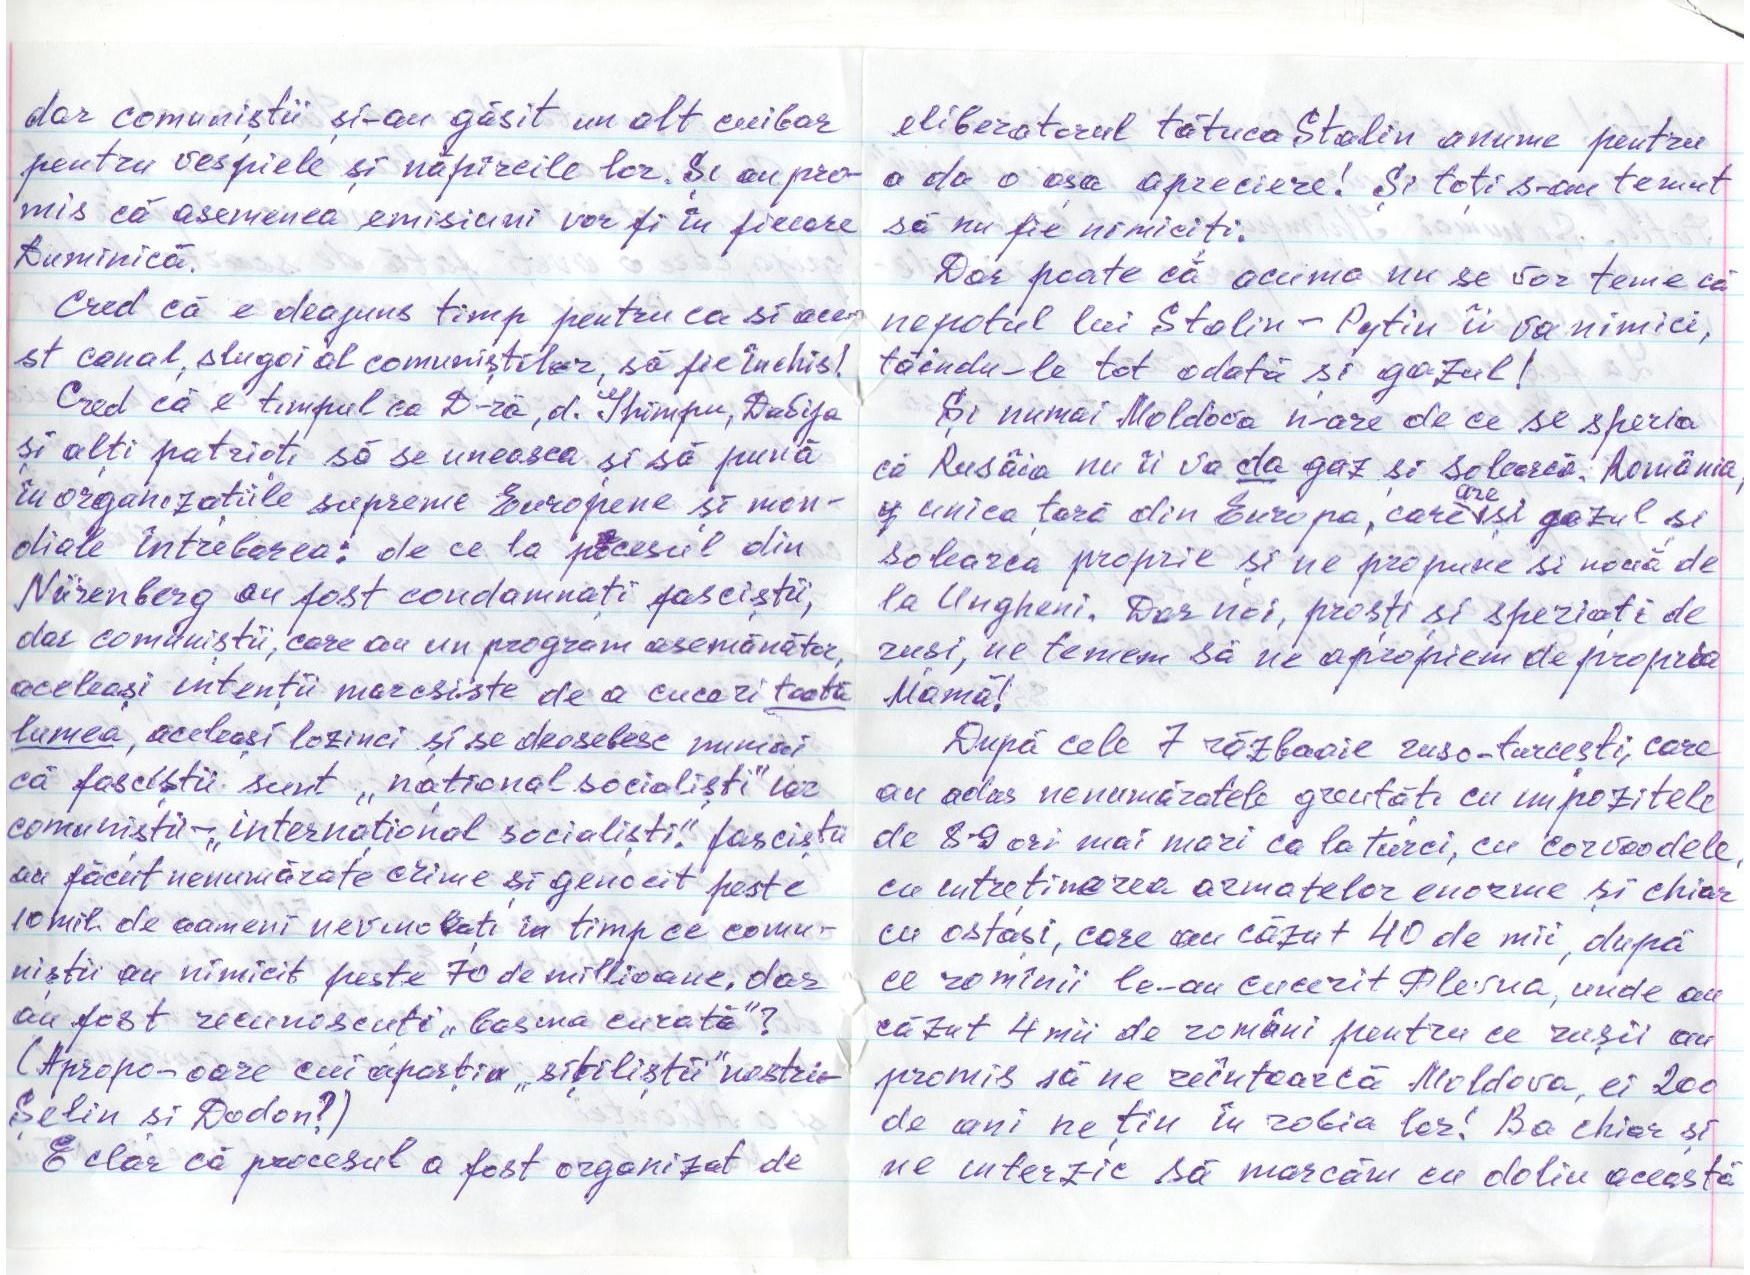 dar comuniștii și-au găsit un alt cuibar
pentru vespiele și năpîrcile lor. Și au pro-
mis că asemenea emisiuni vor fi în fiecare
Duminică.
Cred că e deajuns timp pentru ca si ace-
st canal, slugoi al comuniștilor, să fie închis!
Cred că e timpul ca D-ră, d. Ghimpu, Dabija
și alți patrioți să se uneasca și să pună
în organizațiile supreme Europene și mon-
diale întrebarea: de ce la procesul din
Nürenberg au fost condamnați fasciștii,
dar comuniștii, care au un program asemănător,
aceleași intenții marcsiste de a cuceri toată
lumea, aceleași lozinci și se deosebesc numai
că fasciștii sunt „național socialiști" iar
comuniștii-„internațional socialiști". fasciștii
au făcut nenumărate crime și genocit peste
10 mil. de oameni nevinovați în timp ce comu-
niștii au nimicit peste 70 de millioane. dar
au fost recunoscuți „basma curată"?
(Apropo-oare cui aparțin „sifiliștii" nostri-
Șelin si Dodon?)
E clar că procesul a fost organizat de
eliberatorul tătuca Stalin anume pentru
a da o așa apreciere! Și toți s-au temut
să nu fie nimiciți.
Dar poate că acuma nu se vor teme că
nepotul lui Stalin - Pytin îi va nimici,
tăindu-le tot odată și gazul!
Și numai Moldova n-are de ce se speria
că Rusâia nu îi va da gaz și solearcă. România,
unica țară din Europa, care are iși gazul și
solearca proprie și ne propune si nouă de
la Ungheni. Dar noi, proști și speriați de
ruși, ne temem să ne apropiem de propria
Mamă!
După cele 7 războaie ruso-turcești, care
au adus nenumăratele greutăți cu impozitele
de 8-9 ori mai mari ca la turci, cu corvoodele,
cu intreținerea armatelor enorme și chiar
cu ostași, care au căzut 40 de mii, după
ce rominii le-au cucerit Plevna, unde au
căzut 4 mii de români pentru ce rușii au
promis să ne reîntoarcă Moldova, ei 200
de ani ne țin în robia lor! Ba chiar și
ne interzic să marcăm cu doliu această